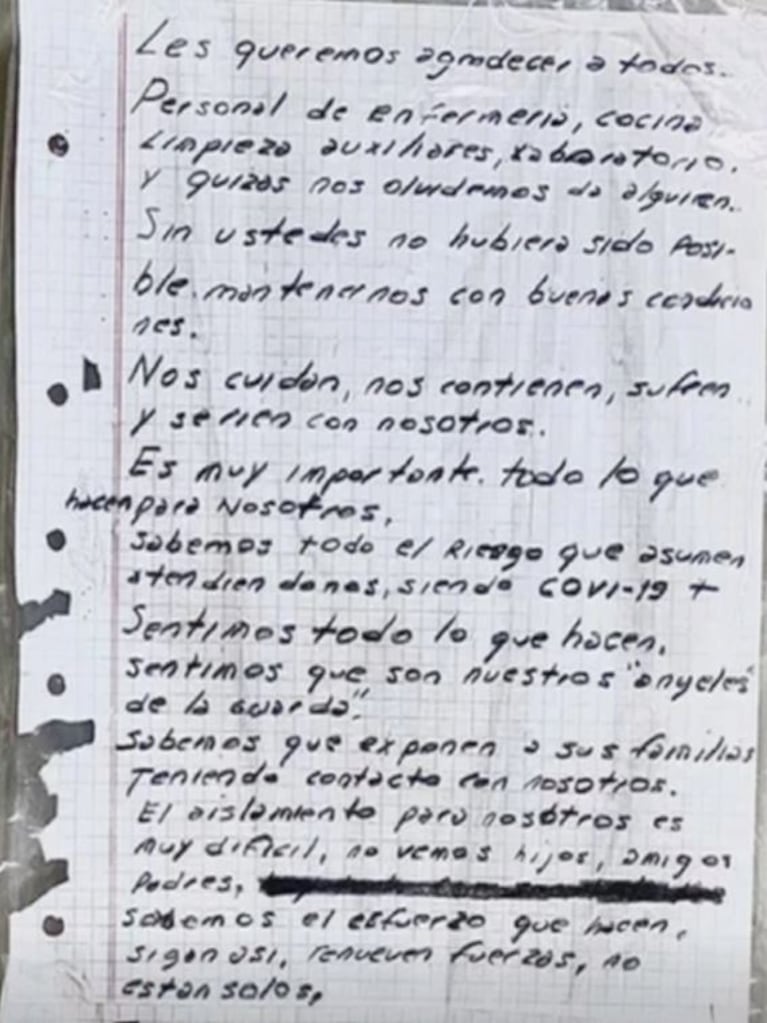 Les queremos agradecer a todos.
Personal de enfermeria, cocina
Limpieza auxiliares, Laboratorio.
Y quizas nos olvidemos de alguien.
Sin ustedes no hubiera sido Posi-
ble. mantenernos con buenas condicio
nes.
Nos cuidan, nos contienen, sufren
y se rien con nosotros.
Es muy importante. todo lo que
hacen para Nosotros.
Sabemos todo el Riesgo que asumen
atendien donos, siendo COVI-19 +
Sentimos todo lo que hacen.
sentimos que son nuestros "angeles"
de la Guarda".
Sabemos que exponen a sus familias
Teniendo contacto con nosotros.
El aislamiento para nosotros es
muy dificil, no vemos hijos, amigos
Padres,
sabemos el esfuerzo que hacen,
sigan asi, renueven fuerzas, no
estan solos,